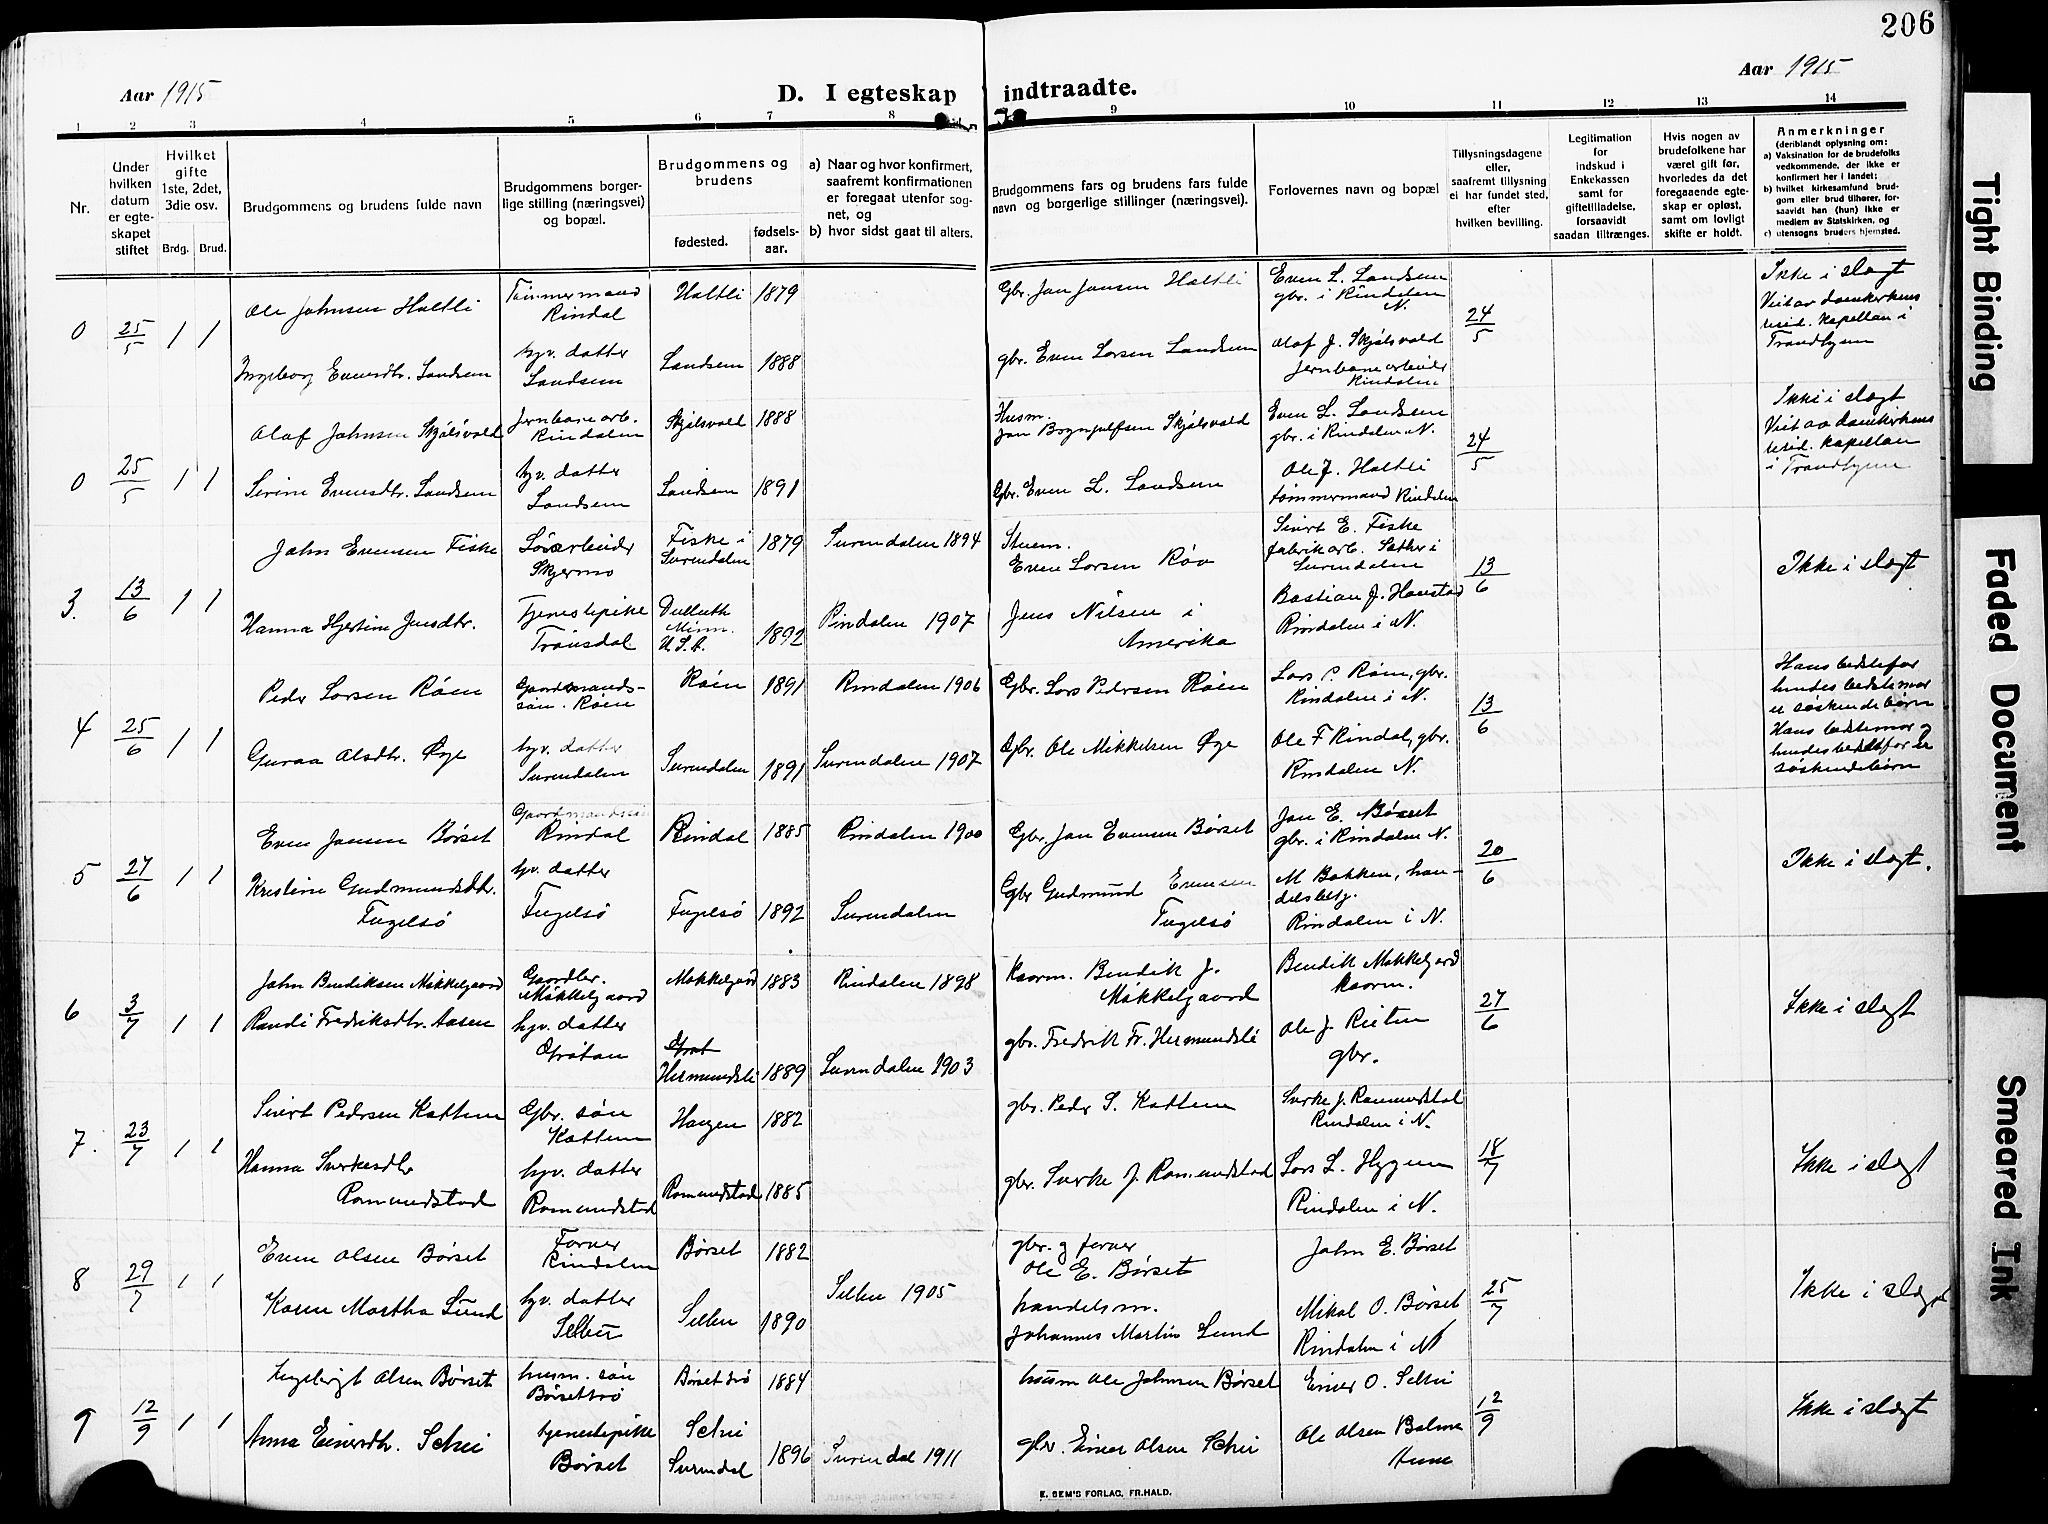 206
Aar 1915
D. I egteskap indtraadte.
Aar 1915
1 2 3 4 5 6 7 8 9 10 11 12 13 14
Nr.
Under hvilken datum er egteskapet stiftet
Hvilket gifte 1ste, 2det, 3die osv.
Brdg. Brud.
Brudgommens og brudens fulde navn
Brudgommens borgerlige stilling (næringsvei) og bopæl.
Brudgommens og brudens
fødested.
fødselsaar.
a) Naar og hvor konfirmert, saafremt konfirmationen er foregaat utenfor sognet, og
b) hvor sidst gaat til alters.
Brudgommens fars og brudens fars fulde navn og borgerlige stillinger (næringsvei).
Forlovernes navn og bopæl
Tillysningsdagene eller, saafremt tillysning ei har fundet sted, efter hvilken bevilling.
Legitimation for indskud i Enkekassen samt for giftetilladelse, forsaavidt saadan tiltrænges.
Hvis nogen av brudefolkene har været gift før, hvorledes da det foregaaende egteskap er opløst, samt om lovligt skifte er holdt.
Anmerkninger
(deriblandt oplysning om:
a) Vaksination for de brudefolks vedkommende, der ikke er konfirmert her i landet;
b) hvilket kirkesamfund brudgom eller brud tilhører, forsaavidt han (hun) ikke er medlem av Statskirken, og
c) utensogns bruders hjemsted.
0 25/5 1 1
Ole Johnsen Haltli
Tømmermand Rindal
Haltli 1879
Gbr. Jon Jonsen Haltli
Even L. Landsem
gbr. i Rindalen N.
24/5
Ikke i slægt
Viet av domkirkens
resid. kapellan i
Trondhjem
Ingeborg Evensdtr. Landsem
hjv. datter Landsem
Landsem 1888
gbr. Even Larsen Landsem
Olaf J. Skjølsvold
Jernbanearbeider
Rindalen
0 25/5 1 1
Olaf Johnsen Skjølsvold
Jernbanearb. Rindalen
Skjølsvold 1888
Husm.
Jon Brynjulfsen Skjølsvold
Even L. Landsem
gbr. i Rindalen N.
24/5
Ikke i slægt
Viet av domkirkens
resid. kapellan
i Trondhjem
Serine Evensdtr. Landsem
hjv. datter Landsem
Landsem 1891
Gbr. Even L. Landsem
Ole J. Haltli
tømmermand Rindalen
3. 13/6 1 1
John Evensen Fiske
Løsarbeider Skjermo
Fiske i Surendalen 1879
Surendalen 1894
Stuem.
Even Larsen Røv
Sivert E. Fiske
fabrikarb. Sæther i
Surendalen
13/6
Ikke i slægt
Hanna Hjertine Jensdtr.
Tjenestepike Tronsdal
Dulluth Minn. U.S.A. 1892
Rindalen 1907
Jens Nilsen i
Amerika
Bastian J. Haustad
Rindalen i N.
4 25/6 1 1
Peder Larsen Røen
Gaardmandssøn. Røen
Røen 1891
Rindalen 1906
Gbr. Lars Pedersen Røen
Lars P. Røen, gbr.
Rindalen i N.
13/6
Hans bedstefar
hendes bedstemor
er søskendebørn
Hans bedstemor og
hendes bedstefar er
søskendebørn
Guraa Olsdtr. Øye
hjv. datter Surendalen
Surendalen 1891
Surendalen 1907
Gbr. Ole Mikkelsen Øye
Ole F Rindal, gbr.
Rindalen N.
5 27/6 1 1
Even Jonsen Børset
Gaardmandssøn Rindal
Rindal 1885
Rindalen 1900
Gbr. Jon Evensen Børset
Jon E. Børset
gbr. i Rindalen N.
20/6
Ikke i slægt.
Kristine Gudmundsdtr.
Fugelsø
hjv. datter Fugelsø
Fugelsø 1892
Surendalen
Gbr Gudmund Evensen
Fugelsø
M Bakken, handelsbetj.
Rindalen i N.
6 3/7 1 1
John Bendiksen Møkkelgaard
Gaardbr. Møkkelgaard
Møkkelgaard 1883
Rindalen 1898
Kaarm. Bendik J.
Møkkelgaard
Bendik Møkkelgaard
kaarm.
27/6
Ikke i slægt
Randi Fredriksdtr. Aasen
hjv. datter
Hermundsli 1889
Surendalen 1903
gbr. Fredrik Fr. Hermundsli
Ole J.
gbr.
7. 23/7 1 1
Sivert Pedersen Kattem
Gbr. søn Kattem
Haugen 1882
gbr. Peder S. Kattem
Sverke J. Romundstad
Rindalen i N.
18/7
Ikke i slægt
Hanna Sverkesdtr
Romundstad
hjv. datter Romundstad
Romundstad 1885
gbr. Sverke J. Romundstad
Lars L. Hyggen
Rindalen i N.
8 29/7 1 1
Even Olsen Børset
Farver Rindalen
Børset 1882
gbr. og farver
Ole E. Børset
John E. Børset
25/7
Ikke i slægt
Karen Martha Lund
hjv. datter Selbu
Selbu 1890
Selbu 1905
handelsm.
Johannes Martin Lund
Mikal O. Børset
Rindalen i N
9 12/9 1 1
Ingebrigt Olsen Børset
husm. søn Børsettrø
Børsettrø 1884
husm Ole Johnsen Børset
Einer O. Schei
12/9
Ikke i slægt
Anna Einersdtr. Schei
tjenestepike Børset
Schei Surendal 1896
Surendal 1911
gbr. Einer Olsen Schei
Ole Olsen Bolme
E. SEM'S FORLAG, FR.HALD.
Tight Binding
Faded Document
Smeared Ink